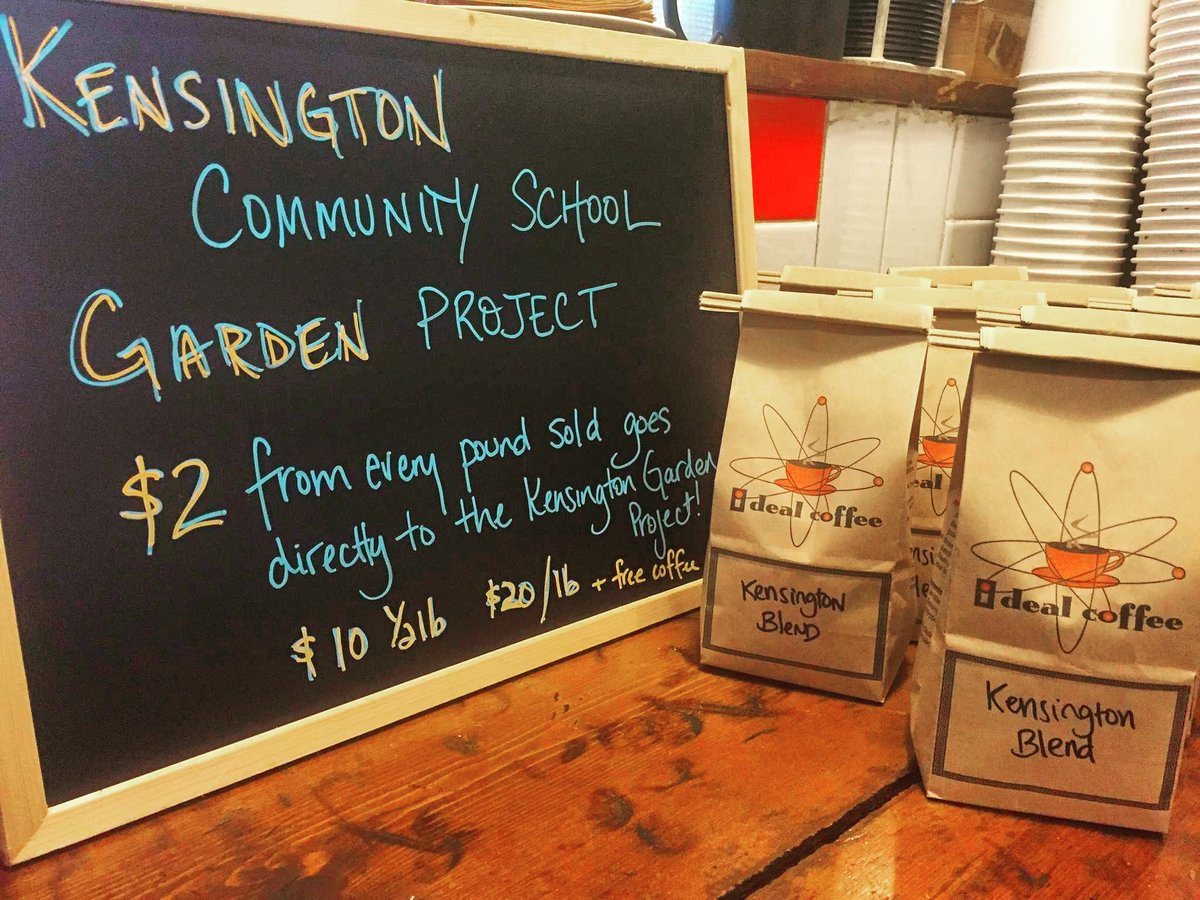 KENSINGTON
COMMUNITY SCHOOL
GARDEN PROJECT
$2 from every pound sold goes
directly to the Kensington Garden
Project!
$10 ½lb $20/lb + free coffee
ideal coffee
Kensington
Blend
ideal coffee
Kensington
Blend
deal